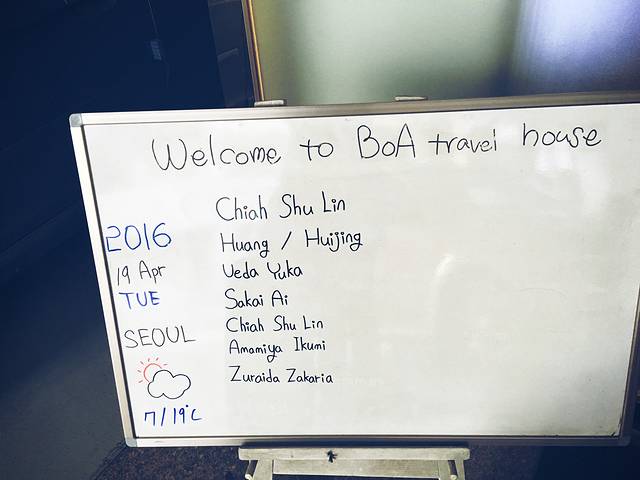 Welcome to BoA travel house
Chiah Shu Lin
2016
Huang / Huijing
19 Apr
Ueda Yuka
TUE
Sakai Ai
SEOUL
Chiah Shu Lin
Amamiya Ikumi
Zuraida Zakaria
7/19°C